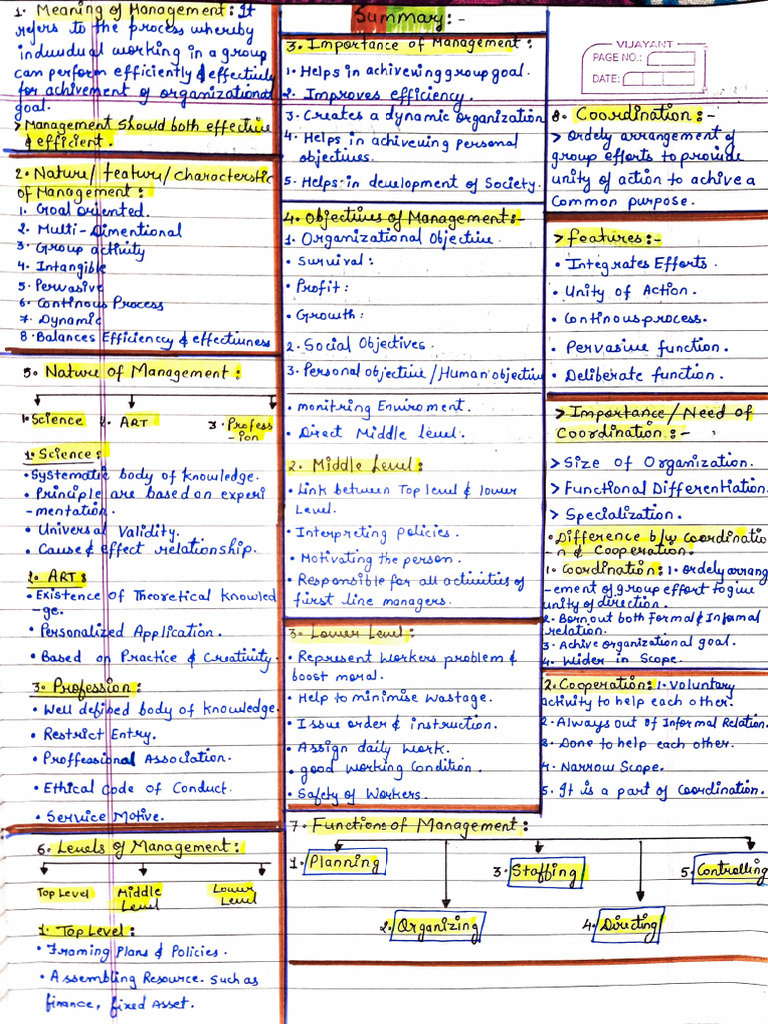 Summary:-
VIJAYANT
PAGE NO.:
DATE:
1. Meaning of Management: It
refers to the process whereby
induvidual working in a group
can perform efficiently & effectively
for achivement of organizational
goal.
> Management Should both effective
& efficient.
2. Nature/feature/characterstic
of Management:
1. Goal oriented.
2. Multi-Dimentional
3. Group activity
4. Intangible
5. Pervasive
6. Continous Process
7. Dynamic
8. Balances Efficiency & effectivness
5. Nature of Management:
1. Science 2. ART 3. Profess
-ion
1. Science:
• Systematic body of knowledge.
• Principle are based on experi
-mentation.
• Universal Validity.
• Cause & effect relationship.
2. ART:
• Existence of Theoretical Knowled
-ge.
• Personalized Application.
• Based on Practice & Creativity.
3. Profession:
• Well defined body of knowledge.
• Restrict Entry.
• Proffessional Association.
• Ethical code of Conduct.
• Service Motive.
6. Levels of Management:
Top Level Middle Lower
Level Level
1. Top Level:
• Framing Plans & Policies.
• Assembling Resource. Such as
finance, fixed Asset.
3. Importance of Management:
1. Helps in achivening group goal.
2. Improves efficiency.
3. Creates a dynamic organization
4. Helps in achivening personal
objectives.
5. Helps in development of Society.
4. Objectives of Management:-
1. Organizational Objective.
• Survival:
• Profit:
• Growth:
2. Social Objectives.
3. Personal objective/Human objective
• monitring Enviroment.
• Direct Middle Level.
2. Middle Level:
• Link between Top level & lower
Level.
• Interpreting policies.
• Motivating the person.
• Responsible for all activities of
first line managers.
3. Lower Level:
• Represent Workers problem &
boost moral.
• Help to minimise Wastage.
• Issue order & instruction.
• Assign daily work.
• good Working Condition.
• Safety of Workers.
7. Functions of Management:
1. Planning 3. Staffing 5. Controlling
2. Organizing 4. Directing
8. Coordination:-
> Ordely arrangement of
group efforts to provide
unity of action to achive a
Common purpose.
> features:-
• Integrates Efforts.
• Unity of Action.
• Continous process.
• Pervasive function.
• Deliberate function.
> Importance/Need of
Coordination:-
> Size of Organization.
> Functional Differentiation.
> Specialization.
• Difference b/w Coordinatio
-n & Cooperation.
1. Coordination: 1. Ordely arrang
-ement of group effort to give
unity of direction.
2. Born out both Formal & Informal
relation.
3. Achive organizational goal.
4. Wider in Scope.
2. Cooperation: 1. Voluntary
activity to help each other.
2. Always out of Informal Relation.
3. Done to help each other.
4. Narrow Scope.
5. It is a part of Coordination.